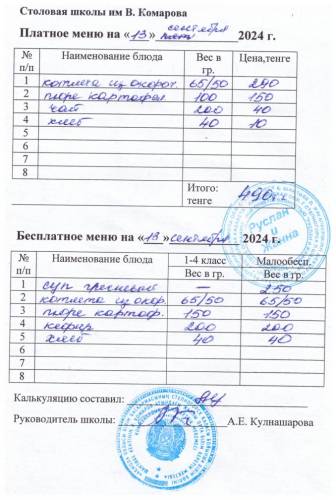 Столовая школы им В. Комарова
Платное меню на «13» сентября 2024 г.
№ п/п Наименование блюда Вес в гр. Цена,тенге
1 котлета из окороч. 65/50 290
2 пюре картофел 100 150
3 чай 200 40
4 хлеб 40 10
5
6
7
8
Итого: тенге 490тг
Руслан и Жанна
Бесплатное меню на «13» сентября 2024 г.
№ п/п Наименование блюда 1-4 класс Малообесп.
Вес в гр. Вес в гр.
1 суп гречневый — 250
2 котлета из окор. 65/50 65/50
3 пюре картоф. 150 150
4 кефир 200 200
5 хлеб 40 40
6
7
8
Калькуляцию составил:
Руководитель школы: А.Е. Кулнашарова